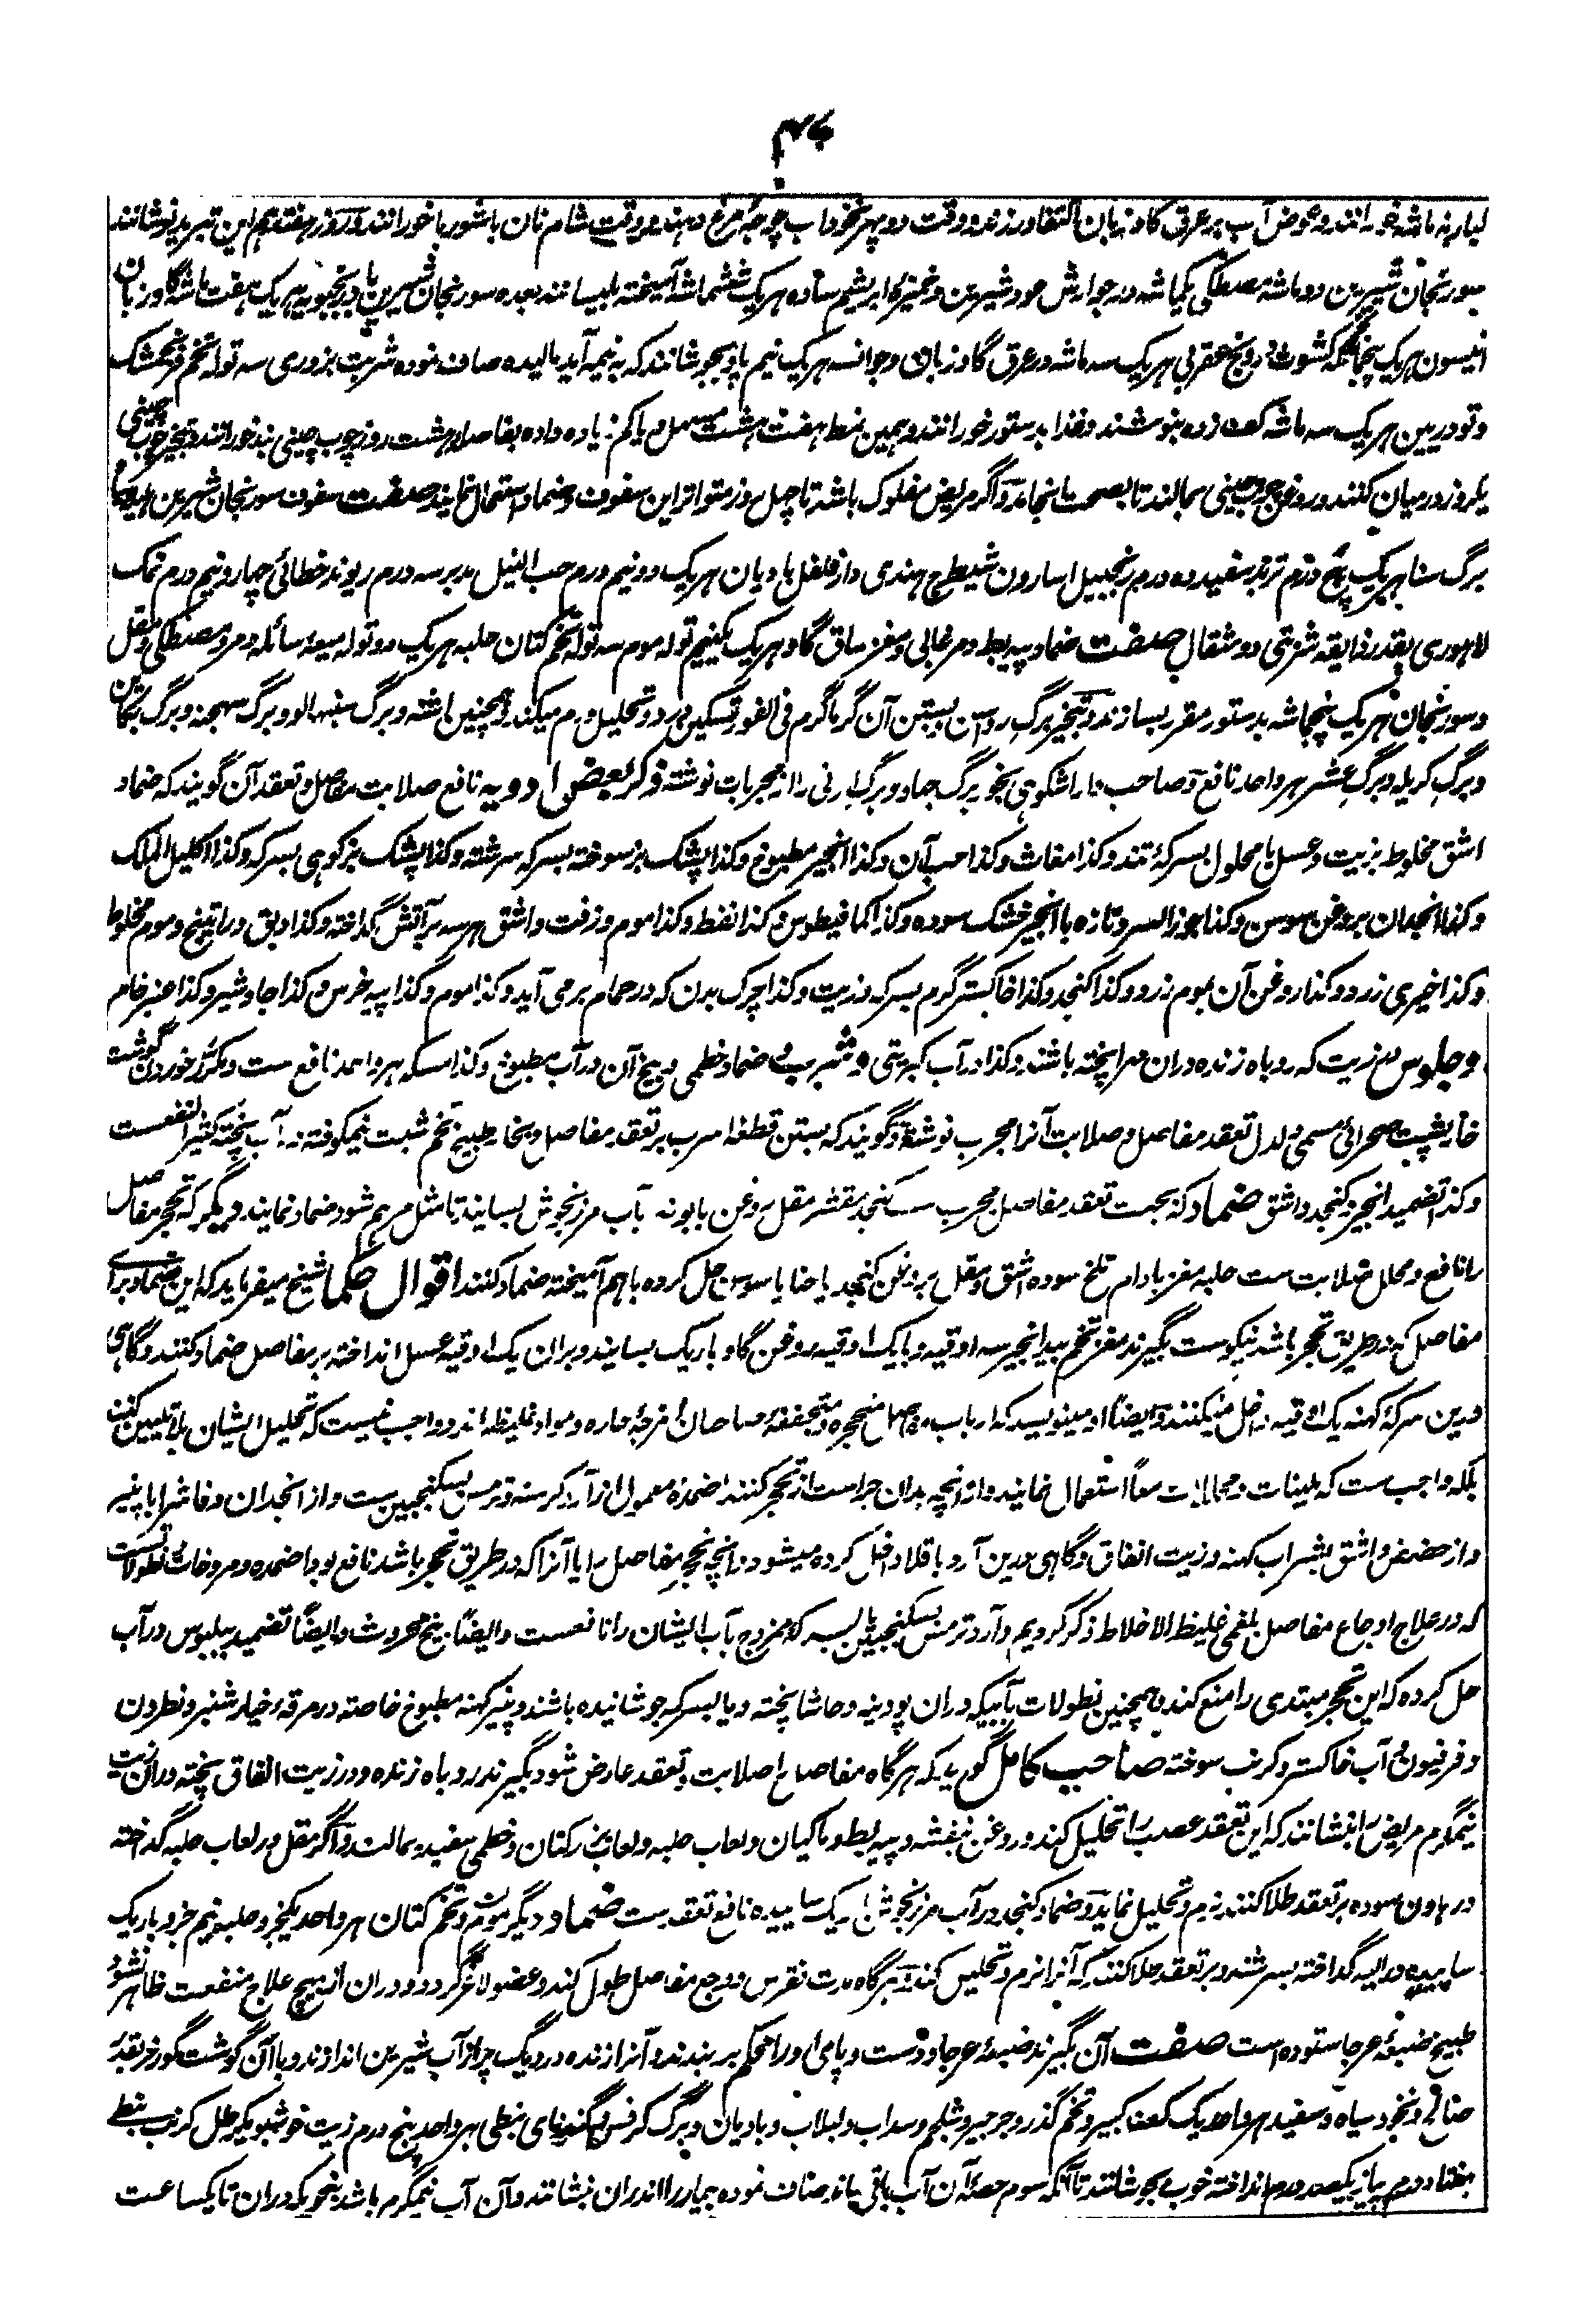 لیارنہ ماشہ خورانند و عوض آب بر عرق گاوزبان اکتفا ورزند و وقت دوپهر نخوداب چوجهٔ مرغ دهند و وقت شام نان با شوربا خورانند و روز هفتم این تبرید نوشانند
سورنجان شیرین دو ماشه مصطگی یکماشه در جوارش عود شیرین و خمیرهٔ ابریشم ساده هر یک ششماشه آمیخته بلیسانند بعده سورنجان شیرین بادرنجبویه هر یک هفت ماشه گاوزبان
انیسون هر یک پنجماشه کشوث درونج عقربی هر یک سه ماشه در عرق گاوزبان و جوانسه هر یک نیم پاو بجوشانند که به نیمه آید مالیده صاف نموده شربت بزوری سه توله تخم فرنجمشک
و تودریین هر یک سه ماشه کف زده بنوشند و غذا بدستور خورانند و بهمین نمط هفت هشت مسهل و یا کم زیاده داده بفاصله هشت روز چوب چینی بند خورانند و تبخیر چوب چینی
یکروز در میان کنند و روغن چوب چینی بمالند تا بصحت انجامد و اگر مریض مفلوک باشد تا چهل روز متواتر این سفوف و ضماد استعمال نمایند صفت سفوف سورنجان شیرین
برگ سنا هر یک پنج درم تربد سفید ده درم زنجبیل اسارون شیطرج هندی دارفلفل بادیان هر یک دو نیم درم حب النیل مدبر سه درم ریوند خطائی چهار و نیم درم نمک
لاهوری بقدر ذایقه شربتی دو مثقال صفت ضماد پیه بط و مرغابی و مغز ساق گاو هر یک یکنیم توله موم سه توله تخم کتان حلبه هر یک دو توله میعه سائله و مر و مصطگی و مقل
و سورنجان هر یک پنجماشه بدستور مقرر بسازند و تبخیر برگ و بستن آن گرماگرم فی الفور تسکین درد و تحلیل ورم میکند و همچنین اشنه و برگ سنبهالو و برگ سهجنه و برگ بکاین
و برگ کریله و برگ عشر هر واحد نافع و صاحب دارا شکوهی بخور برگ جهاو و برگ ارنی را از مجربات نوشته ذکر بعض ادویه نافع صلابت مفاصل و تعقد آن گویند که ضماد
اشق مخلوط بزیت و عسل یا محلول بسرکه تند و کذا مغاث و کذا حب آن و کذا انجیر مطبوخ و کذا پشک بز سوخته بسرکه سرشته و کذا پشک بز کوهی بسرکه و کذا اکلیل الملک
و کذا انجدان بروغن سوسن و کذا جوز السرو تازه با انجیر خشک سوده و کذا کمافیطوس و کذا نفط و کذا موم و زفت و اشق هر سه بر آتش گداخته و کذا دبق و راتینج و موم مخلوط
و کذا خیری زرد و کذا روغن آن بموم زرد و کذا کنجد و کذا خاکستر کرم بسرکه و زیت و کذا چرک بدن که در حمام برمی آید و کذا موم و کذا پیه خرس و کذا جاوشیر و کذا عنبر خام
و جلوس در زیت که روباه زنده دران مهرا پخته باشند و کذا در آب کبریتی و شرب و ضماد خطمی و بیخ آن در آب مطبوخ و کذا مسکه هر واحد نافع ست و مکرر خوردن گوشت
خارپشت صحرائی مسمی به دلدل تعقد مفاصل و صلابت آنرا مجرب نوشته و گویند که بستن قطعهٔ سرب بر تعقد مفاصل و بخار طبیخ تخم شبت نیمکوفته در آب پخته کثیر النفعست
و کذا تضمید انجیر و کنجد و اشق ضماد که بجهت تعقد مفاصل مجرب ست کنجد مقشر مقل روغن بابونه بآب مرزنجوش بسایند تا مثل مرهم شود ضماد نمایند دیگر که تحجر مفاصل
را نافع و محلل صلابت ست حلبه مغز بادام تلخ سوده اشق و مقل بروغن کنجد یا حنا یا سوسن حل کرده باهم آمیخته ضماد کنند اقوال حکما شیخ میفرماید که این ضماد برای
مفاصل که در طریق تحجر باشد نیکوست بگیرند مغز تخم بیدانجیر سه اوقیه و با یک اوقیه روغن گاو باریک بسایند و بران یک اوقیه عسل انداخته بر مفاصل ضماد کنند و گاهی
درین سرکهٔ کهنه یک اوقیه داخل میکنند و ایضاً او مینویسد که ارباب مفاصل متحجره و متجففه صاحبان امزجهٔ حاره و مواد غلیظه اند و واجب نیست که تحلیل ایشان بلا تلیین کنند
بلکه واجب ست که ملینات و محللات معاً استعمال نمایند و از آنچه بدان حراست از تحجر کنند اضمدهٔ معمول از آرد کرسنه و ترمس بسکنجبین ست و از انجدان و فاشرا با پنیر
و از حضض و اشق بشراب کهنه و زیت انفاق و گاهی درین آرد باقلا داخل کرده میشود و از آنچه تحجر مفاصل را یا آنرا که در طریق تحجر باشد نافع بود اضمده و مروخات و نطولات ست
که در علاج اوجاع مفاصل بلغمی غلیظ الاخلاط ذکر کردیم و آرد ترمس بسکنجبین یا بسرکهٔ ممزوج بآب ایشان را نافعست و ایضاً بیخ محروث و ایضاً تضمید بلبوس در آب
حل کرده که این تحجر مبتدی را منع کند و همچنین نطولات بآبیکه دران پودینه و حاشا پخته و یا بسرکه جوشانیده باشند و پنیر کهنه مطبوخ خاصته در مرقه و خیار شنبر و نطرون
و فرفیون و آب خاکستر و کرنب سوخته صاحب کامل گوید که هرگاه مفاصل را صلابت و تعقد عارض شود بگیرند روباه زنده و در زیت انفاق پخته دران زیت
نیمگرم مریض را بنشانند که این تعقد عصب را تحلیل کند و روغن بنفشه و پیه بط و ماکیان و لعاب حلبه و لعاب بزر کتان و خطمی سفید بمالند و اگر مقل در لعاب حلبه گداخته
در هاون سوده بر تعقد طلا کنند نرم و تحلیل نماید و ضماد کنجد در آب مرزنجوش باریک ساییده نافع تعقد ست ضماد دیگر و تخم کتان هر واحد یکجزو حلبه نیم جزو باریک
ساییده در الیه گداخته بسرشند و بر تعقد طلا کنند که آنرا نرم و تحلیل کند و هرگاه مدت نقرس و وجع مفاصل طول کند و عضو لاغر گردد و دران از هیچ علاج منفعت ظاهر نشود
طبیخ ضبعهٔ عرجا ستوده است صفت آن بگیرند ضبعهٔ عرجا و دست و پای او را محکم بر بندند و آنرا زنده در دیگ پر از آب شیرین اندازند و با آن گوشت گورخر بقدر
صافی و نخود سیاه و سفید هر واحد یک کف کبیر و تخم گذر و جرجیر و شلجم و سداب و لبلاب و بادیان و برگ کرفس و گندنای نبطی هر واحد پنج درم زیت خوشبو یکرطل کرنب نبطی
هفتاد درم پیاز یکصد درم انداخته خوب بجوشانند تا آنکه سوم حصهٔ آن آب باقی ماند صاف نموده بیمار را اندران بنشانند و آن آب نیمگرم باشد بنحویکه دران تا یکساعت